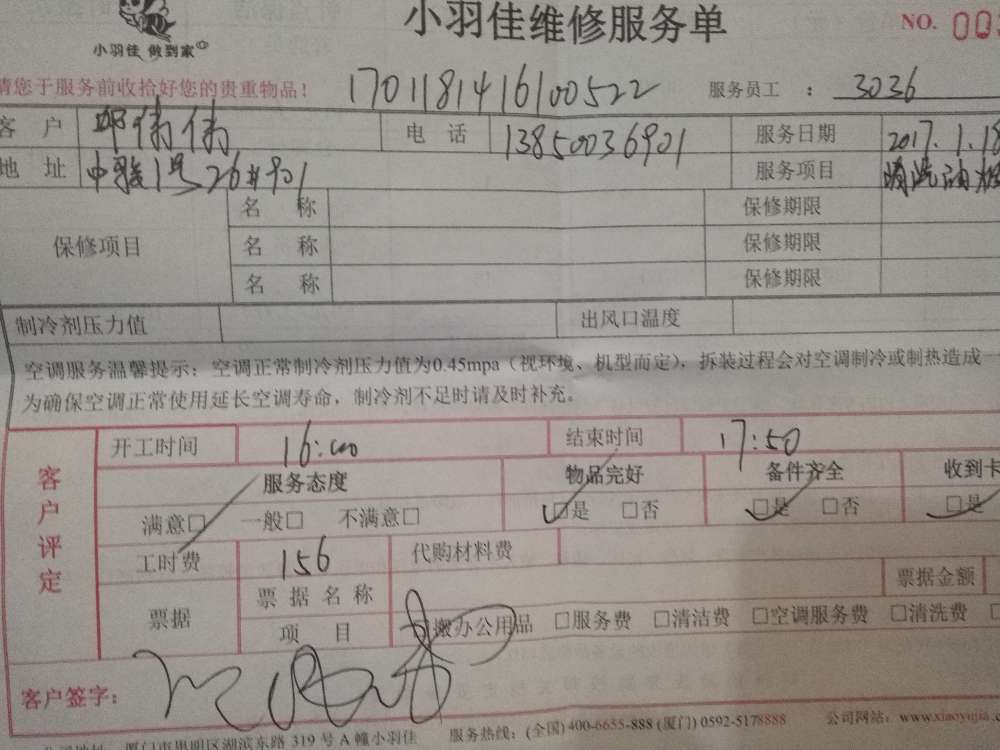 小羽佳维修服务单
NO. 00
小羽佳 做到家
请您于服务前收拾好您的贵重物品! 1701181416100522 服务员工 : 3036
客 户 邓伟伟 电 话 13850036901 服务日期 2017.1.18
地 址 中骏1号26#901 服务项目 清洗油烟
保修项目 名 称 保修期限
名 称 保修期限
名 称 保修期限
制冷剂压力值 出风口温度
空调服务温馨提示:空调正常制冷剂压力值为0.45mpa(视环境、机型而定),拆装过程会对空调制冷或制热造成一
为确保空调正常使用延长空调寿命,制冷剂不足时请及时补充。
客户评定
开工时间 16:00 结束时间 17:50
服务态度 物品完好 备件齐全 收到卡
满意□ 一般□ 不满意□ □是 □否 □是 □否 □是
工时费 156 代购材料费
票据 票据名称 票据金额
项 目 搬办公用品 □服务费 □清洁费 □空调服务费 □清洗费
客户签字:
厦门市思明区湖滨东路 319 号 A 幢小羽佳 服务热线:(全国) 400-6655-888 (厦门) 0592-5178888 公司网站:www.xiaoyujia